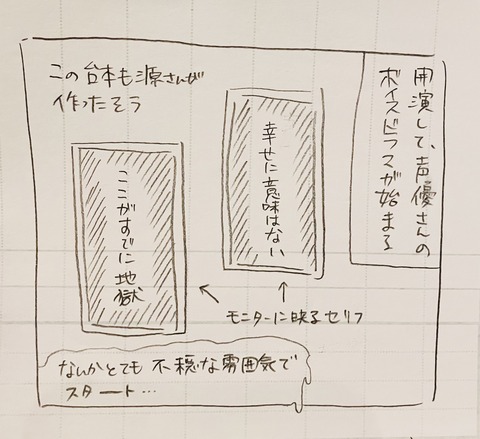 開演して、声優さんの
ボイスドラマが始まる
この台本も源さんが
作ったそう
幸せに意味はない
ここがすでに地獄
モニターに映るセリフ
なんかとても不穏な雰囲気で
スタート…